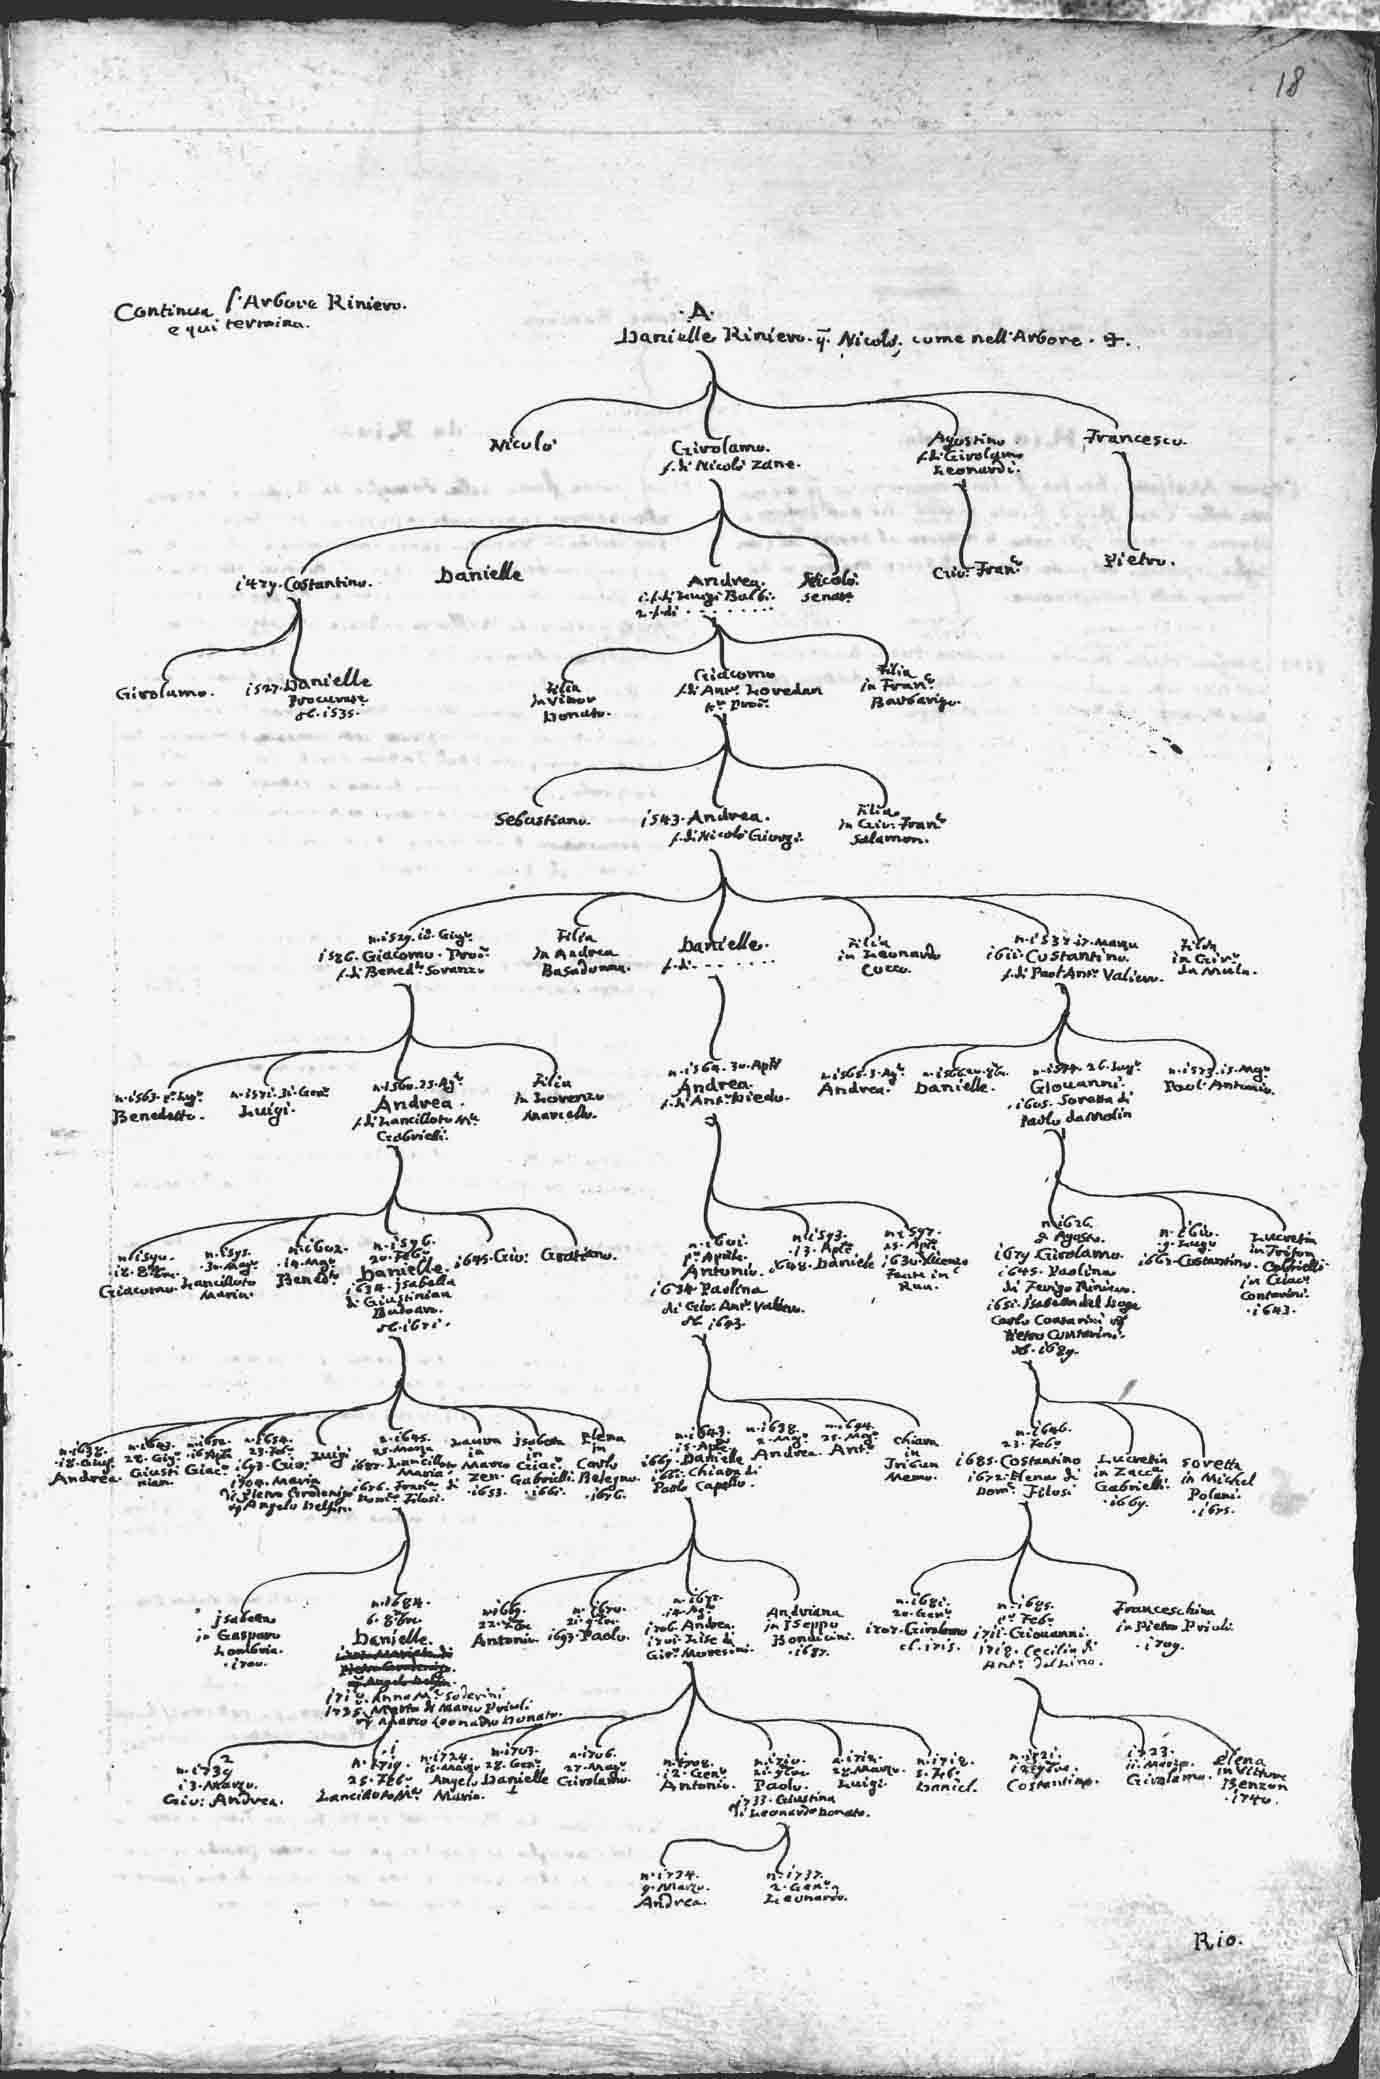 18
Continua l'Arbore Riniero.
e qui termina.
.A.
Danielle Riniero. q. Nicolò, come nell'Arbore.
Nicolò
Girolamo.
f. di Nicolò Zane.
Agostino
f. di Girolamo
Leonardi.
Francesco.
1479. Costantino.
Danielle
Andrea.
1. f. di Luigi Balbi.
2. f. di . . . . . . .
Nicolò
senat.r
Gio: Fran.co
Pietro.
Girolamo.
1527. Danielle
Procurat.r
ob. 1535.
Filia
in Vitor
Donato.
Giacomo
f. di Ant.o Loredan
K.r Proc.r
Filia
in Fran.co
Barbarigo.
Sebastiano.
1543. Andrea.
f. di Nicolò Giorgi.
Filia
in Gio: Fran.co
Salamon.
n. 1529. 18. Giug.o
1586. Giacomo. Proc.r
f. di Bened.o Soranzo
Filia
in Andrea
Basadonna.
Danielle.
f. di . . . . . .
Filia
in Leonardo
Cocco.
n. 1537. 17. Marzo
1611. Costantino.
f. di Paol'Ant.o Valiero.
Filia
in Gir.o
da Mula.
Benedetto.
n. 1571. 31. Gen.o
Luigi.
n. 1560. 25. Ag.o
Andrea.
f. di Lancilloto M.a
Gabrielli.
Filia
in Lorenzo
Marcello.
n. 1564. 30. Apr.
Andrea.
f. di Ant.o Diedo.
n. 1565. 3. Ag.o
Andrea.
Danielle.
n. 1572. 26. Lug.o
Giovanni.
1605. Soretta di
Paolo da Molin
n. 1573. 15. Mag.o
Paol'Antonio.
n. 1590.
18. 8bre.
Giacomo.
n. 1595.
30. Mag.o
Lancilloto
Maria.
n. 1602.
14. Mag.o
Bened.o
n. 1596.
20. Feb.o
Danielle.
1634. Isabella
di Giustinian
Badoaro.
ob. 1671.
1645. Gio:
Gratiano.
n. 1601.
p.o Aprile.
Antonio.
1634. Paolina
di Gio: Ant.o Valiero.
ob. 1643.
n. 1593.
13. Aprile
1648. Daniele
n. 1597.
25. Aprile
n. 1626.
2. Agosto.
1679. Girolamo.
1645. Paolina
di Ferigo Riniero.
1651. Isabella del Doge
Carlo Contarini v.a
Pietro Contarini.
ob. 1689.
n. 1610.
9. Lug.o
1667. Costantino.
Lucretia
in Trifon
Gabrielli
in Giac.o
Contarini.
. 1643.
n. 1638.
18. Giug.o
Andrea.
n. 1643.
28. Giug.o
Giusti
nian.
n. 1652.
16. Apr.
Giac.o
n. 1654.
23. Feb.o
1693. Gio:
1704. Maria
di Pietro Gradenigo
v.a Angelo Delfin.
Luigi
n. 1645.
25. Marzo
1687. Lancilloto
Maria
1676. Fran.ca di
Dom.o Filosi.
Laura
in
Marco
Zen.
. 1653.
Isabetta
in
Giac.o
Gabrielli.
. 1661.
Elena
in
Carlo
Belegno.
. 1676.
n. 1643.
15. Aprile
1669. Danielle
1661. Chiara di
Paolo Capello.
n. 1638.
2. Mag.o
Andrea.
n. 1644.
25. Mag.o
Ant.o
Chiara
in
Trifan
Memo.
n. 1646.
23. Feb.o
1685. Costantino
1672. Elena di
Dom.o Filosi
Lucretia
in Zacc.a
Gabrielli.
. 1669.
Soretta
in Michel
Polani.
. 1675.
Isabetta
in Gasparo
Lombria.
. 1700.
n. 1684.
6. 8bre.
Danielle.
1710. Anna M.a Soderini
1735. Marta di Marco Priuli
v.a Marco Leonardo Donato.
n. 1669.
Antonio.
n. 1670.
21. 9bre.
1693. Paolo.
n. 1672.
14. Ag.o
1706. Andrea.
1701. Lise di
Gir.o Moresini.
Andriana
in Iseppo
Bondicini.
. 1687.
n. 1681.
20. Gen.o
1707. Girolamo
ob. 1715.
n. 1685.
p.o Feb.o
1711. Giovanni.
1718. Cecilia di
Ant.o da Lino.
Franceschina
in Pietro Priuli.
. 1709.
2
n. 1739
13. Marzo.
Gio: Andrea.
1
n. 1719.
25. Feb.o
Lanciloto M.a
n. 1724.
15. Marzo.
Angelo
Maria.
n. 1703.
28. Gen.o
Danielle
n. 1706.
27. Mag.o
Girolamo.
n. 1708.
12. Gen.o
Antonio.
n. 1710.
21. 9bre
Paolo.
1733. Celustina
di Leonardo Donato.
n. 1712.
28. Marzo.
Luigi.
n. 1718.
5. Feb.o
Daniel.
n. 1721.
Costantino.
1723.
11. Marzo.
Girolamo.
Elena
in Vittore
Benzon
. 1740.
n. 1734.
9. Marzo.
Andrea.
n. 1737.
2. Gen.o
Leonardo.
Rio.